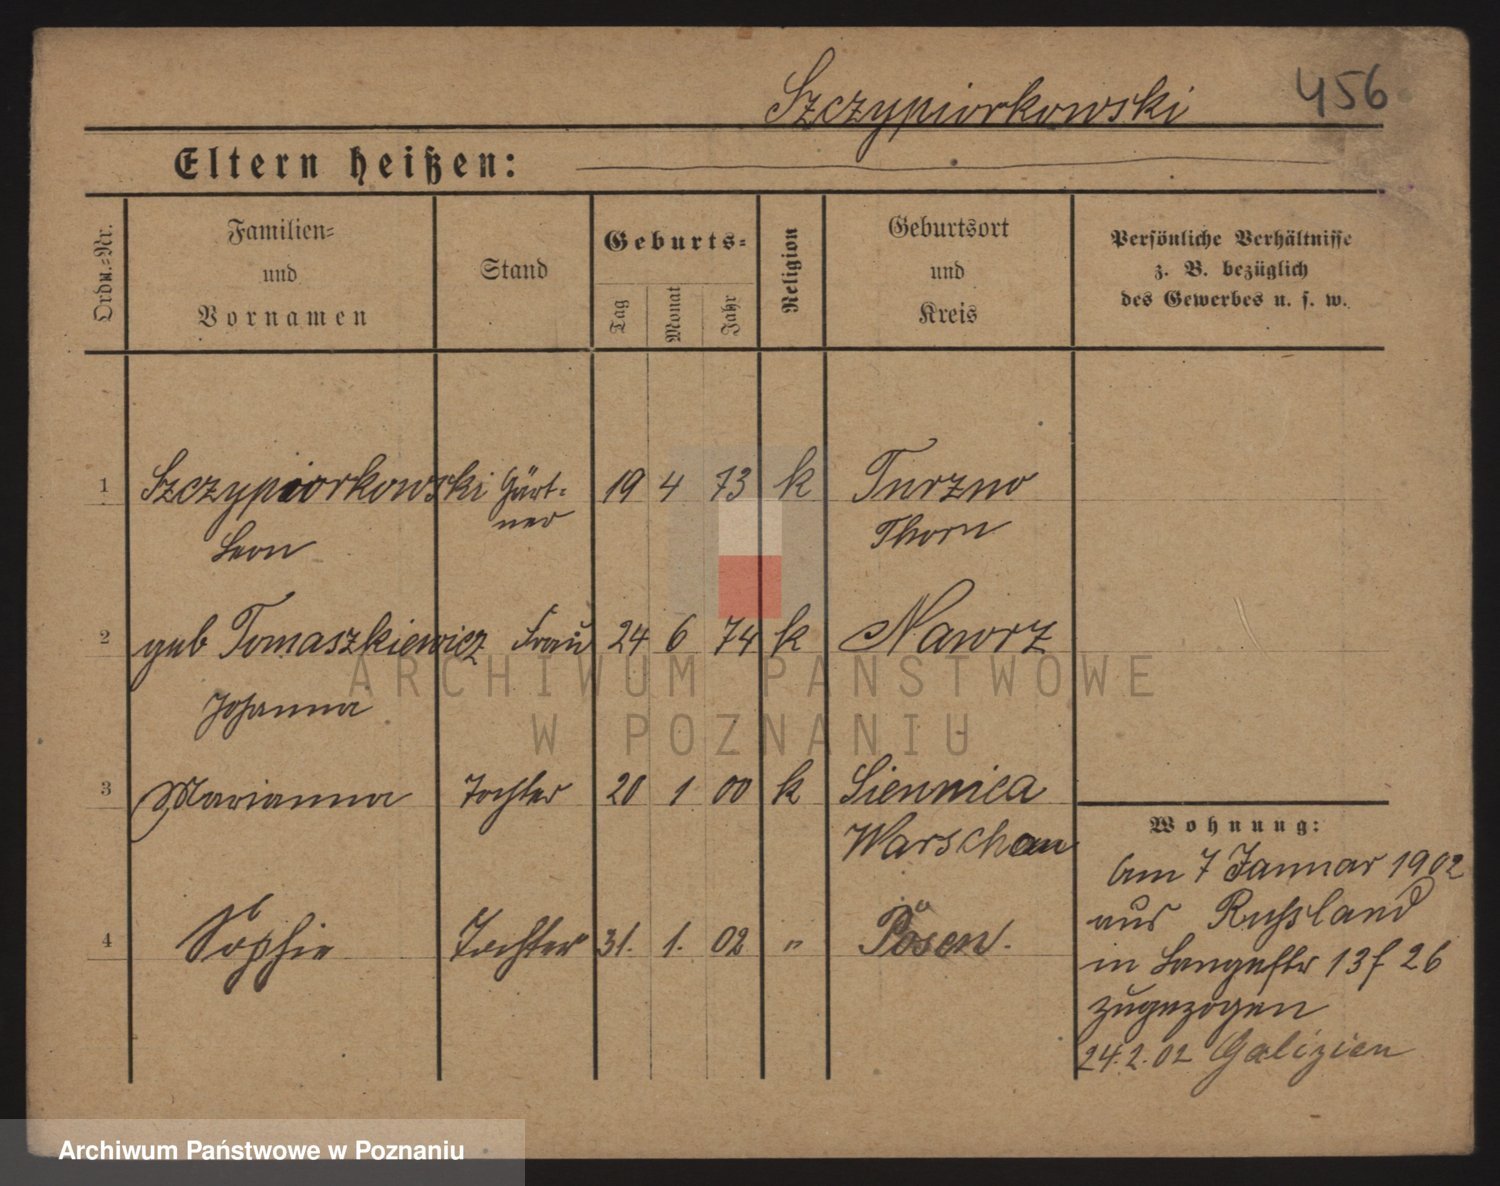 Szczypiorkowski 456
Eltern heißen:
Ordn.-Nr.
Familien-
und
Vornamen
Stand
Geburts-
Tag
Monat
Jahr
Religion
Geburtsort
und
Kreis
Persönliche Verhältnisse
z. B. bezüglich
des Gewerbes u. s. w.
1 Szczypiorkowski Gärt- 19 4 73 k Turzno
ner
Leon Thorn
2 geb Tomaszkiewicz Frau 24 6 74 k Nawrz
Johanna
3 Marianna Tochter 20 1 00 k Siennica
Warschau
4 Sophie Tochter 31. 1. 02 " Posen.
Wohnung:
Am 7 Januar 1902
aus Russland
in Langestr 13 f 26
zugezogen
24.2.02 Galizien
ARCHIWUM PAŃSTWOWE
W POZNANIU
Archiwum Państwowe w Poznaniu